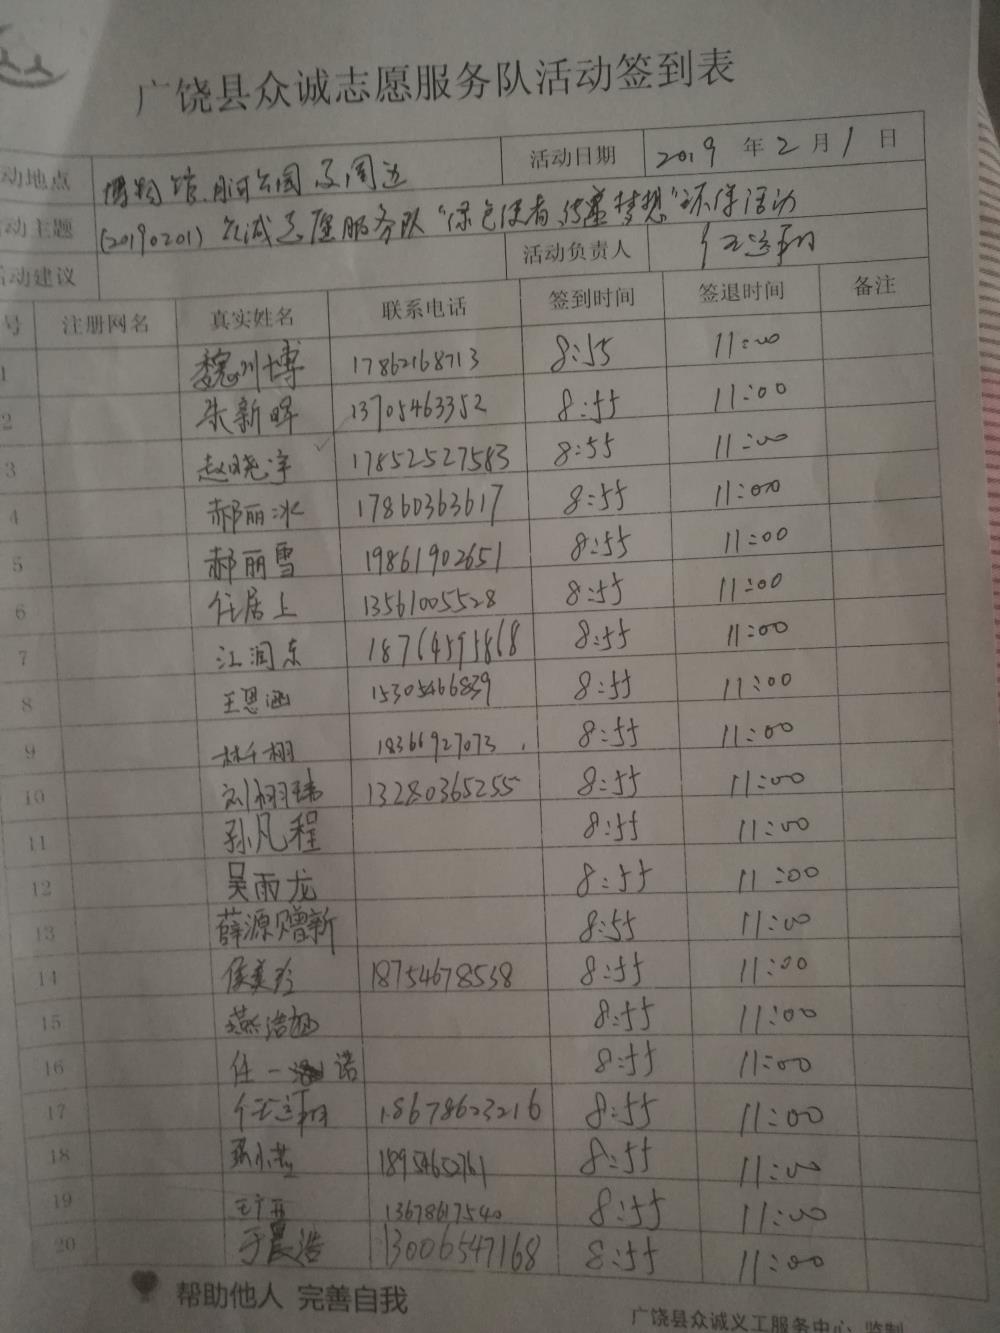 广饶县众诚志愿服务队活动签到表
动地点 博物馆、月河公园及周边 活动日期 2019年2月1日
动主题 (20190201) 众诚志愿服务队“绿色使者 传递梦想”环保活动
活动建议 活动负责人
号 注册网名 真实姓名 联系电话 签到时间 签退时间 备注
1 魏州博 17862168713 8:55 11:00
2 朱新晖 13705463352 8:55 11:00
3 赵晓宇 17852527583 8:55 11:00
4 郝丽冰 17860363617 8:55 11:00
5 郝丽雪 19861902651 8:55 11:00
6 任居上 13561005528 8:55 11:00
7 江润东 18764595868 8:55 11:00
8 王思涵 15305466839 8:55 11:00
9 林千栩 18366927073 8:55 11:00
10 刘栩玮 13280365255 8:55 11:00
11 孙凡程 8:55 11:00
12 吴雨龙 8:55 11:00
13 薛源赠新 8:55 11:00
14 侯美玲 18754678538 8:55 11:00
15 8:55 11:00
16 任一诺 8:55 11:00
17 18678623216 8:55 11:00
18 18954602761 8:55 11:00
19 13678617540 8:55 11:00
20 于晨浩 13006547168 8:55 11:00
帮助他人 完善自我
广饶县众诚义工服务中心 监制